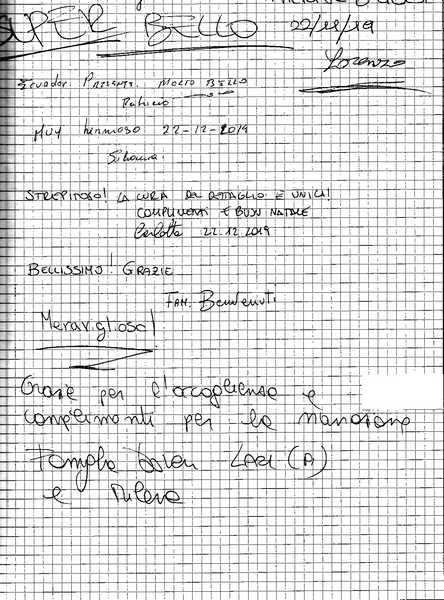 SUPER BELLO 22/12/19
Lorenzo
Ecuador Presente. Molto Bello
Patricio
Muy hermoso 22-12-2019
STREPITOSO! LA CURA DEL DETTAGLIO È UNICA!
COMPLIMENTI E BUON NATALE
Carlotta 22.12.2019
BELLISSIMO! GRAZIE
FAM. Benvenuti
Meraviglioso!
Grazie per l'accoglienza e
complimenti per la
Laer (A)
e Milena